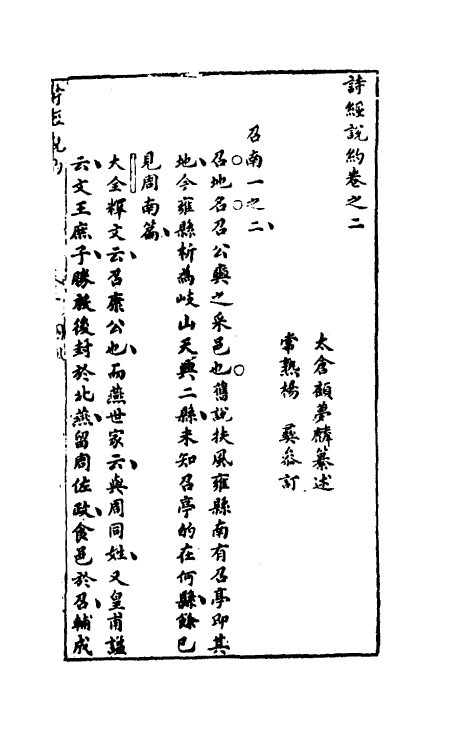 詩經說約卷之二
太倉顧夢麟纂述
常熟楊 彝叅訂
召南一之二
召地名召公奭之采邑也舊說扶風雍縣南有召亭即其
地今雍縣析為岐山天興二縣未知召亭的在何縣餘已
見周南篇
大全釋文云召康公也而燕世家云與周同姓又皇甫謐
云文王庶子勝殷後封於北燕留周佐政食邑於召輔成